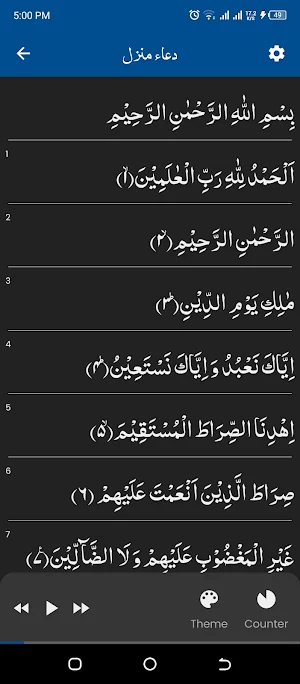 5:00 PM 17.2 K/S 49
دعاء منزل
بِسْمِ اللّٰهِ الرَّحْمٰنِ الرَّحِيْمِ
1
اَلْحَمْدُ لِلّٰهِ رَبِّ الْعٰلَمِيْنَۙ(۱)
2
الرَّحْمٰنِ الرَّحِيْمِۙ(۲)
3
مٰلِكِ يَوْمِ الدِّيْنِؕ(۳)
4
اِيَّاكَ نَعْبُدُ وَ اِيَّاكَ نَسْتَعِيْنُؕ(۴)
5
اِهْدِنَا الصِّرَاطَ الْمُسْتَقِيْمَۙ(۵)
6
صِرَاطَ الَّذِيْنَ اَنْعَمْتَ عَلَيْهِمْ(۶)
7
غَيْرِ الْمَغْضُوْبِ عَلَيْهِمْ وَ لَا الضَّآلِّيْنَ۠(۷)
Theme Counter